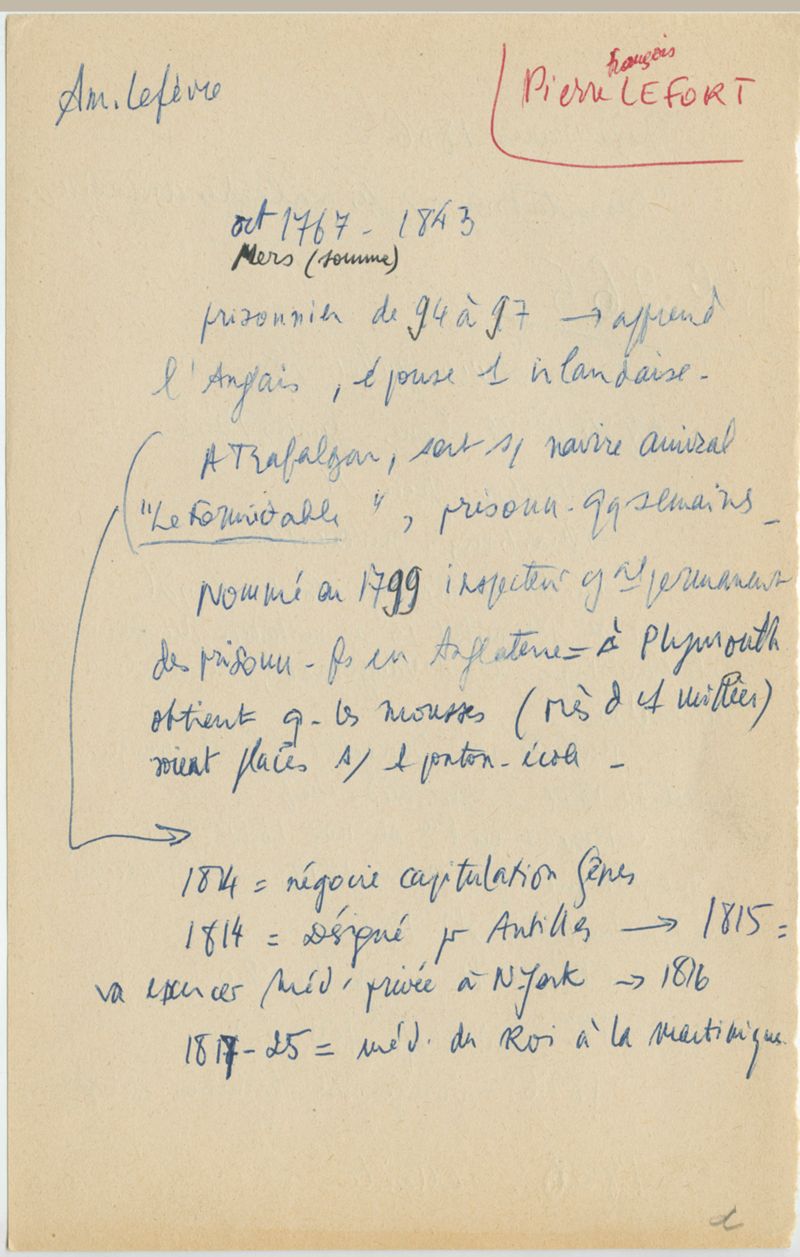 Am. Lefèvre
françois
Pierre LEFORT
oct 1767 - 1843
Mers (somme)
prisonnier de 94 à 97 → apprend
l'Anglais, épouse 1 irlandaise -
A Trafalgar, sert s/ navire amiral
"Le Formidable", prisonn. qq semaines -
Nommé en 1799 inspecteur gnal permanent
des prisonn - fs en Angleterre = à Plymouth
obtient q - les mousses (près d 1 millier)
soient placés s/ 1 ponton-école -
1814 = négocie capitulation Gênes
1814 = Désigné pr Antilles → 1815 =
va exercer méd. privée à N-York → 1816
1817-25 = méd. du Roi à la Martinique